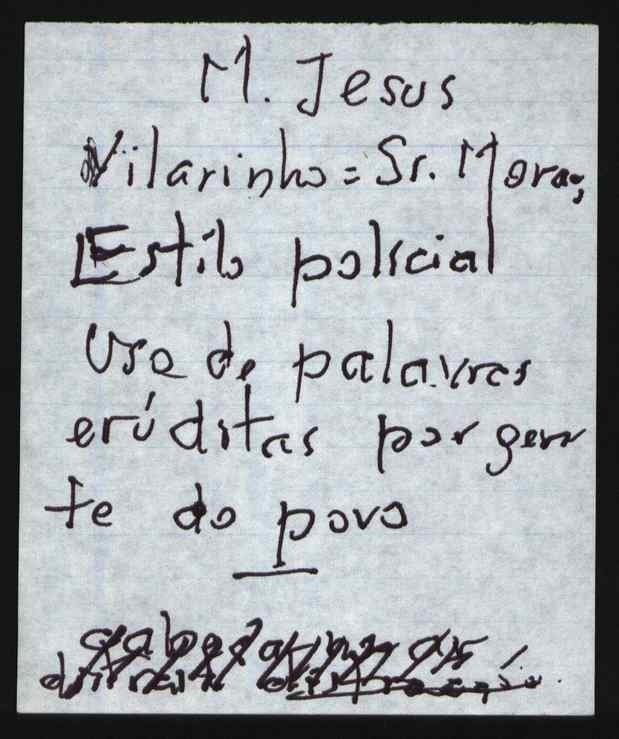 M. Jesus
Vilarinho = Sr. Moraes
Estilo policial
Uso de palavras
erúditas por gen-
te do povo